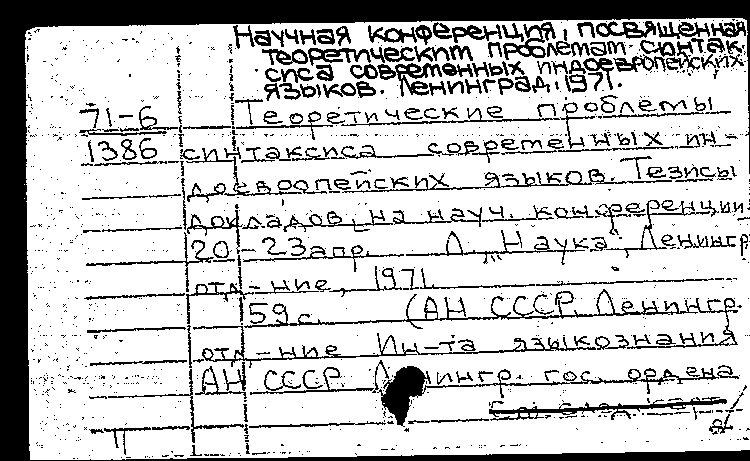 Научная конференция, посвященная
теоретическим проблемам синтак
сиса современных индоевропейских
языков. Ленинград, 1971.
71-6 Теоретические проблемы
1386 синтаксиса современных ин-
доевропейских языков. Тезисы
докладов на науч. конференции
20-23 апр. Л., "Наука", Ленингр
отд-ние, 1971
59 с. (АН СССР. Ленингр.
отд-ние Ин-та языкознания
АН СССР. Ленингр. гос. ордена